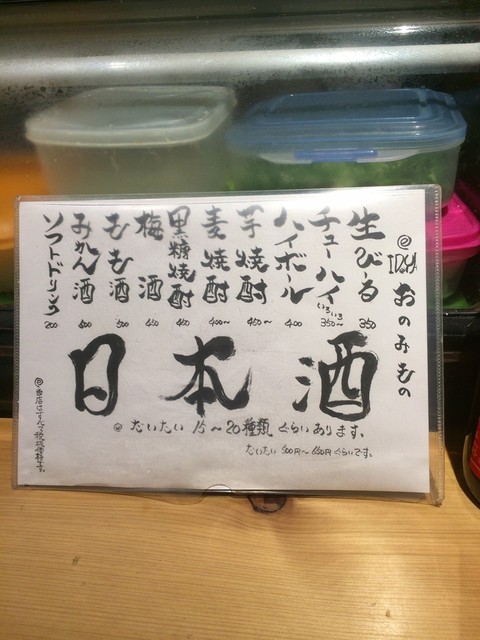 おのみもの
生びーる 350
チューハイ いろいろ 350~
ハイボール 400
芋焼酎 450~
麦焼酎 400~
黒糖焼酎 450
梅酒 450
もも酒 500
みかん酒 400
ソフトドリンク 200
日本酒
だいたい 15~20種類ぐらいあります。
だいたい 500円~650円ぐらいです。